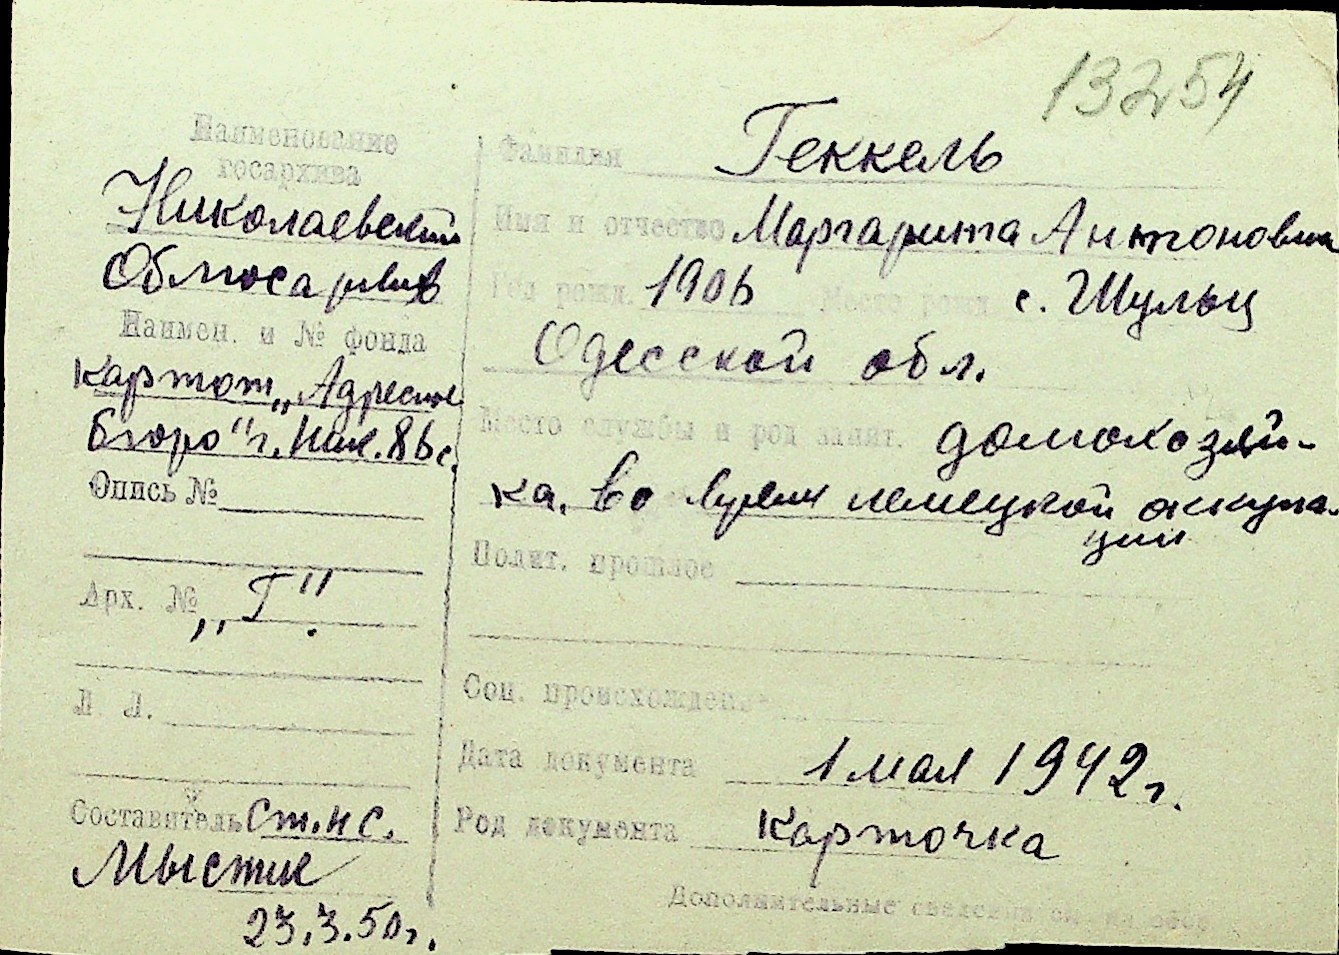 13254
Наименование
госархива
Николаевский
Облгосархив
Наимен. и № фонда
Картот. „Адресное
Бюро" г. Ник. 86 с.
Опись №
Арх. № „Г".
Л. Л.
Составитель Ст. н с.
Мыстик
23.3.50г.
Фамилия Геккель
Имя и отчество Маргарита Антоновна
Год рожд. 1906 Место рожд с. Шульц
Одесской обл.
Место службы и род занят. домохозяй-
ка. во время немецкой оккупа-
ции
Полит. прошлое
Соц. происхождение
Дата документа 1 мая 1942г.
Род документа Карточка
Дополнительные сведения на обор